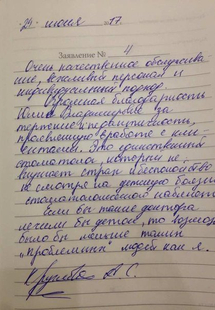 25 июня 17.
Заявление № 4
Очень качественное обслужива
ние, вежливый персонал и
индивидуальный подход.
Огромная благодарность
Юлии Владимировне за
терпение и
проявленную в работе с
Это единственный
стоматолог, который не
внушает страх и беспокойство
не смотря на детскую боязнь
стоматологического кабинета.
Если бы такие доктора
лечили бы детей, то возможно
было бы меньше таких
"проблемных" людей как я.